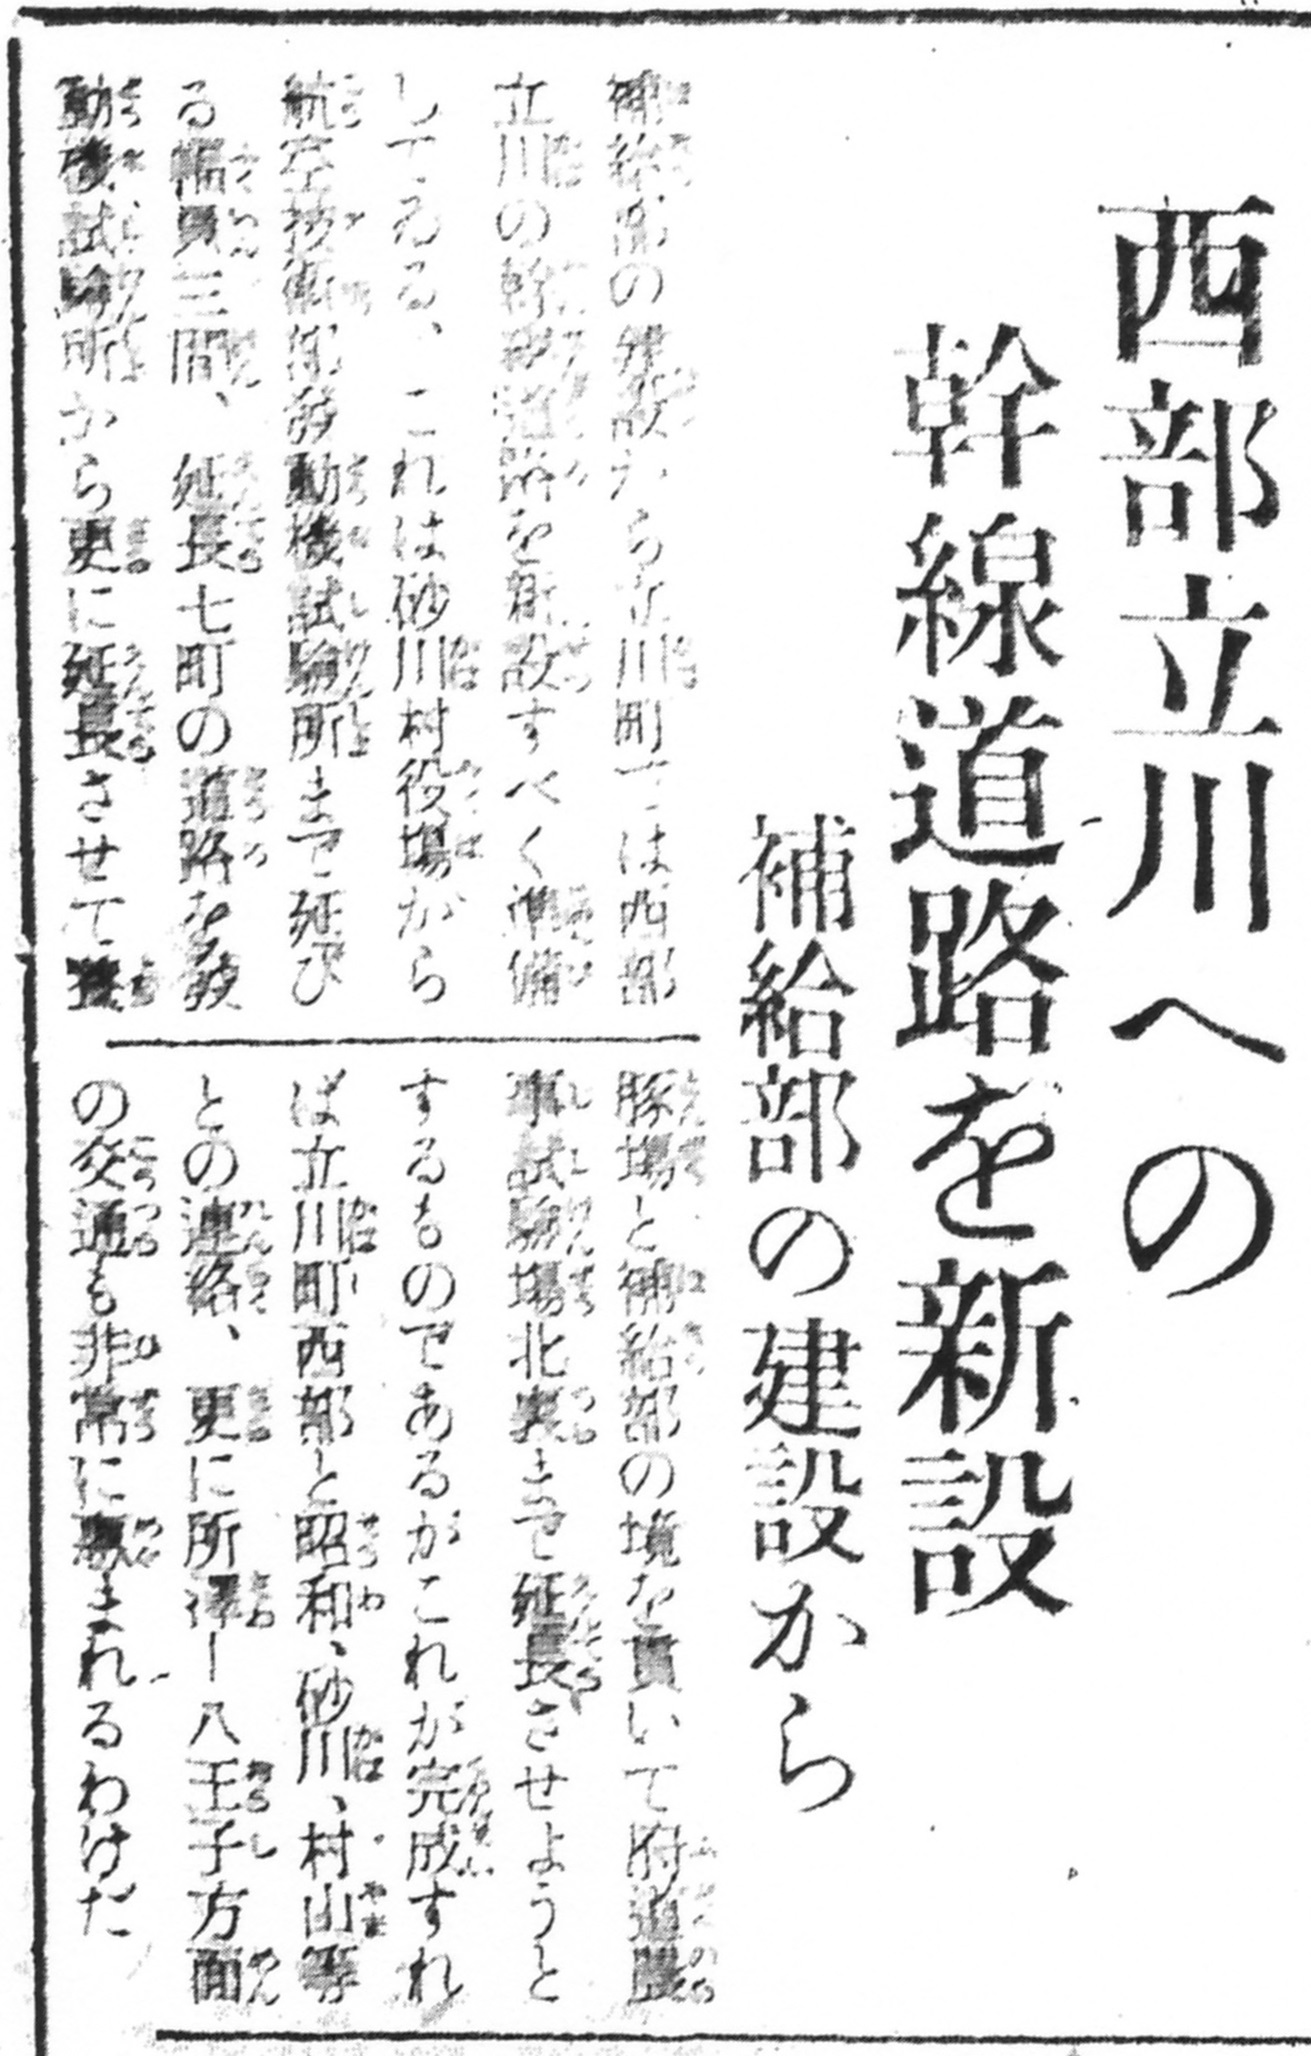 西部立川への
幹線道路を新設
補給部の建設から
補給部の建設から立川町では西部
立川の幹線道路を新設すべく準備
してゐる、これは砂川村役場から
航空技術部発動機試験所まで延び
る幅員三間、延長七町の道路を発
動機試験所から更に延長させて
豚場と補給部の境を貫いて府道
事試験場北裏まで延長させようと
するものであるがこれが完成すれ
ば立川町西部と昭和、砂川、村山等
との連絡、更に所澤ー八王子方面
の交通も非常に恵まれるわけだ